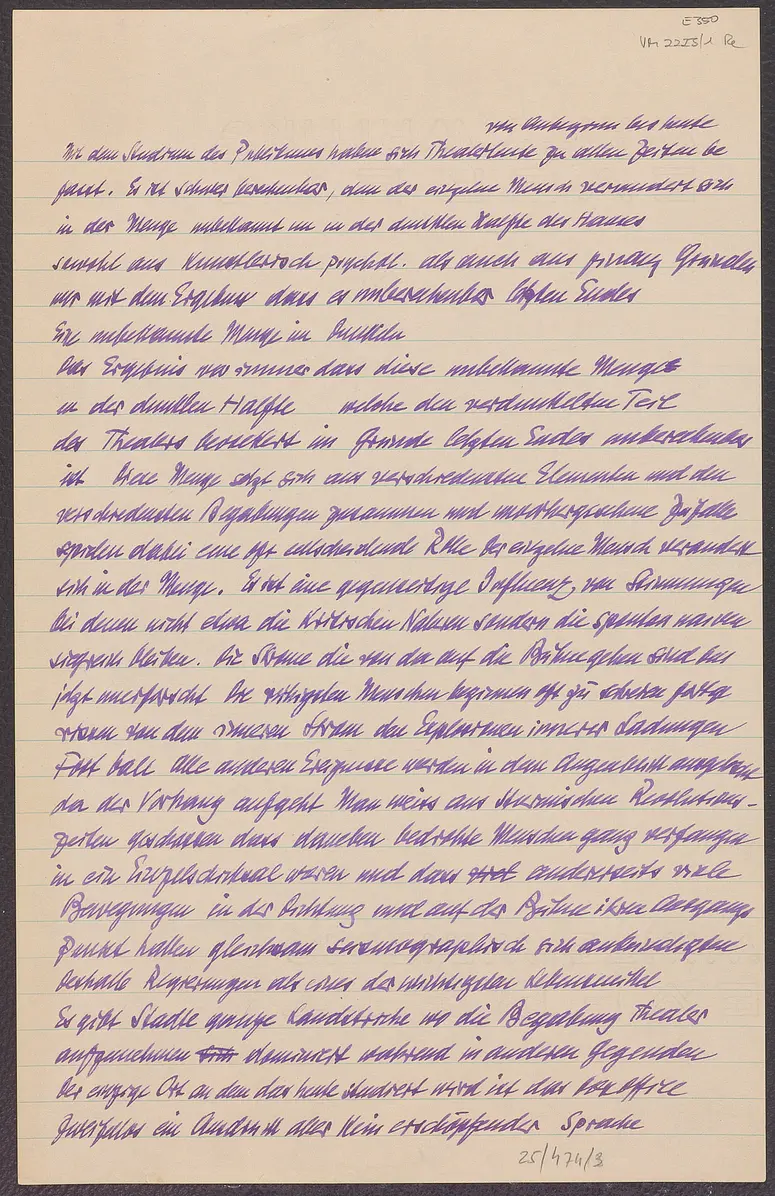 E 350
von Anbeginn bis heute
Mit dem Studium des Publikums haben sich Theaterleute zu allen Zeiten be
fasst. Es ist schwer berechenbar, denn der einzelne Mensch verändert sich
in der Menge unbekannt in der dunklen Hälfte des Hauses
sowohl aus künstlerisch psychol. als auch aus finanz Gründen
nur mit dem Ergebnis dass es unberechenbar letzten Endes
Eine unbekannte Menge im Dunkeln
Das Ergebnis war immer dass diese unbekannte Menge
in der dunklen Hälfte welche den verdunkelten Teil
des Theaters bevölkert im Grunde letzten Endes unberechenbar
ist Diese Menge setzt sich aus verschiedensten Elementen und den
verschiedensten Begabungen zusammen und unvorhergesehene Zufälle
spielen dabei eine oft entscheidende Rolle Der einzelne Mensch verändert
sich in der Menge. Es ist eine gegenseitige Influenz, von Stimmungen
bei denen nicht etwa die kritischen Naturen sondern die spontan naiven
siegreich bleiben. Die Ströme die von da auf die Bühne gehen sind bis
jetzt unerforscht Die ruhigsten Menschen beginnen oft zu schreien fortge
rissen von dem inneren Strom den Explosionen innerer Ladungen
Foot ball Alle anderen Ereignisse werden in dem Augenblick
da der Vorhang aufgeht Man weiss aus stürmischen Revolutions-
zeiten dass daneben bedrohte Menschen ganz verfangen
in ein Einzelschicksal waren und dass andererseits viele
Bewegungen in der Dichtung und auf der Bühne ihren Ausgangs
Punkt hatten gleichsam seismographisch sich ankündigten
deshalb Regierungen als eines der wichtigsten Lebensmittel
Es gibt Städte ganze Landstriche wo die Begabung Theater
aufzunehmen dominiert während in anderen Gegenden
Der einzige Ort an dem das heute studiert wird ist das box office
Zweifellos ein Ausdruck aber kein erschöpfender Sprache
25/474/3